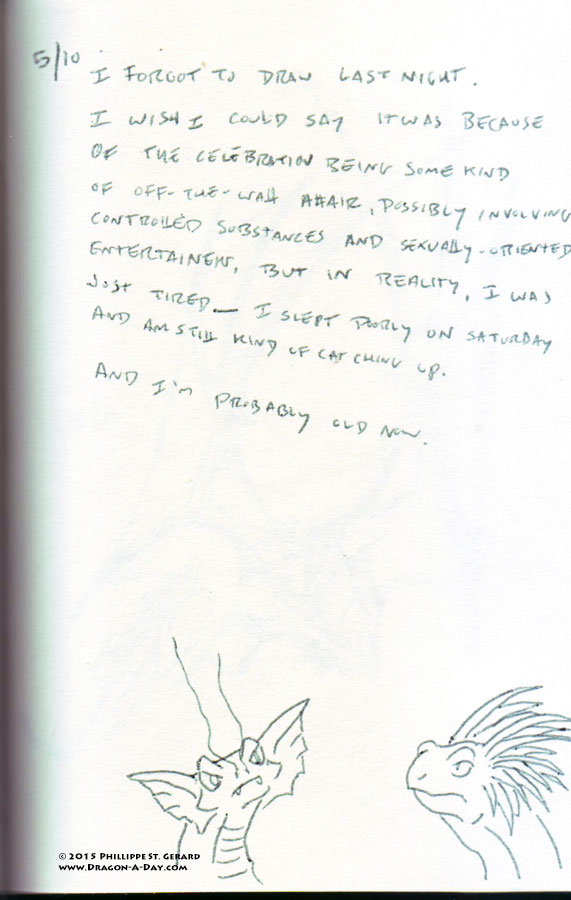 5/10
I FORGOT TO DRAW LAST NIGHT.
I WISH I COULD SAY IT WAS BECAUSE
OF THE CELEBRATION BEING SOME KIND
OF OFF-THE-WALL AFFAIR, POSSIBLY INVOLVING
CONTROLLED SUBSTANCES AND SEXUALLY-ORIENTED
ENTERTAINEM, BUT IN REALITY, I WAS
JUST TIRED— I SLEPT POORLY ON SATURDAY
AND AM STILL KIND OF CATCHING UP.
AND I'M PROBABLY OLD NOW.
© 2015 PHILLIPPE ST. GERARD
WWW.DRAGON-A-DAY.COM